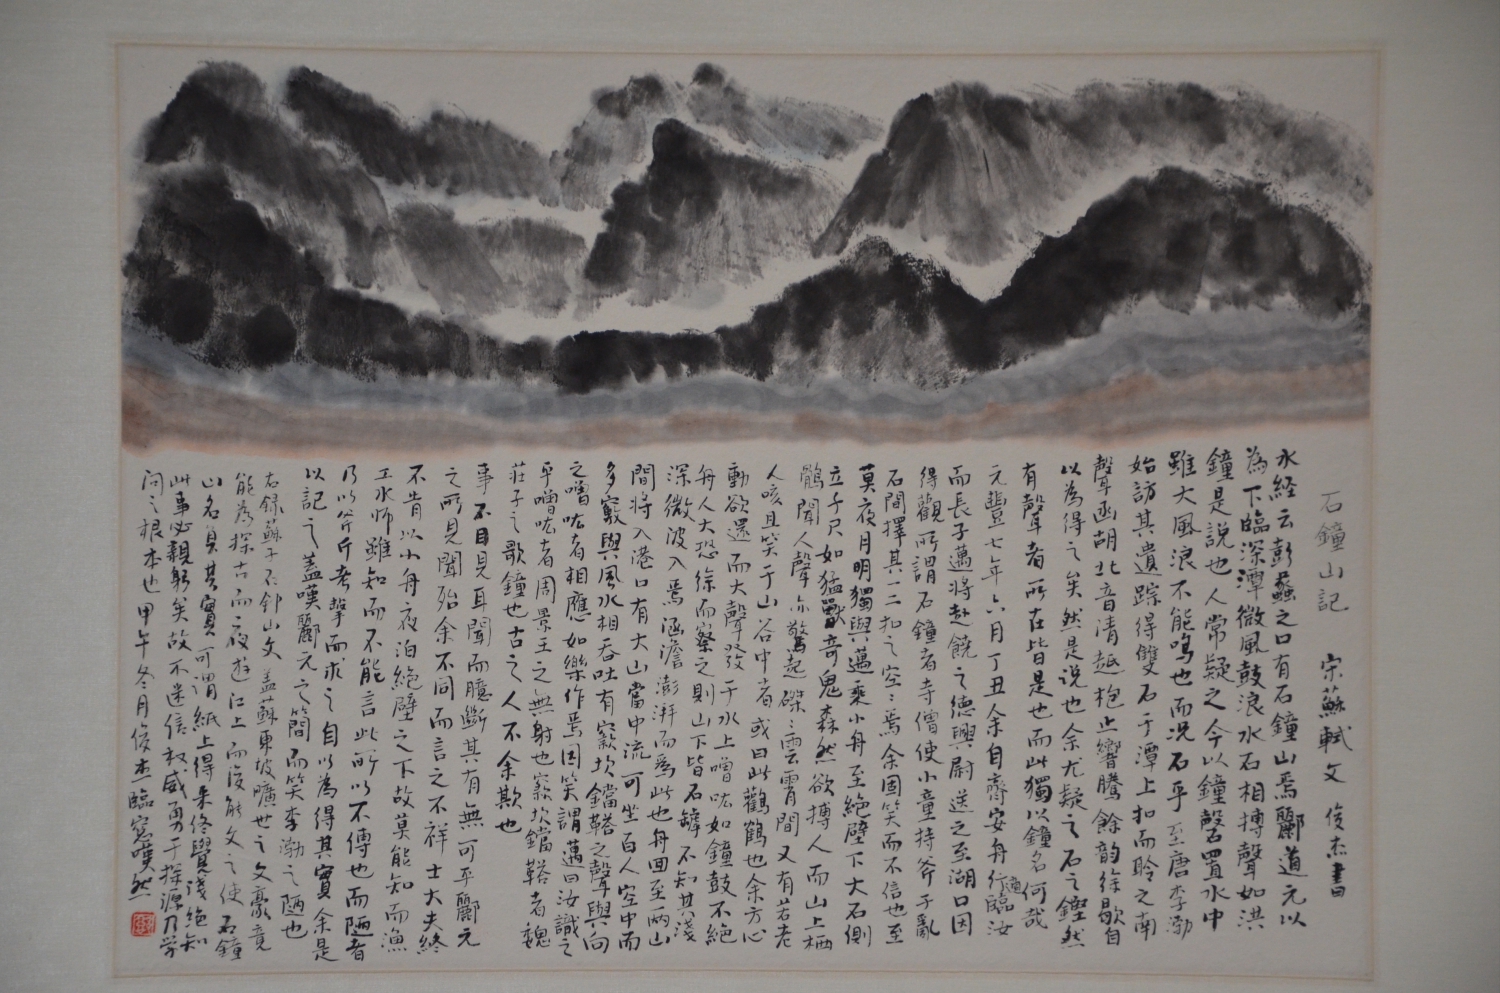 石鐘山記 宋蘇軾文 俊杰書
水経云彭蠡之口有石鐘山焉酈道元以
為下臨深潭微風鼓浪水石相搏聲如洪
鐘是說也人常疑之今以鐘磬置水中
雖大風浪不能鳴也而况石乎至唐李渤
始訪其遺踪得雙石于潭上扣而聆之南
聲函胡北音清越枹止響騰餘韵徐歇自
以為得之矣然是说也余尤疑之石之鏗然
有聲者所在皆是也而此獨以鐘名何哉
元豐七年六月丁丑余自齊安舟行適臨汝
而長子邁將赴饒之德興尉送之至湖口因
得觀所謂石鐘者寺僧使小童持斧于亂
石間擇其一二扣之空=焉余固笑而不信也至
莫夜月明獨與邁乘小舟至絶壁下大石側
立千尺如猛獸奇鬼森然欲搏人而山上栖
鶻聞人聲亦驚起磔=雲霄間又有若老
人咳且笑于山谷中者或曰此鸛鶴也余方心
動欲還而大聲發于水上噌吰如鐘鼓不絶
舟人大恐徐而察之則山下皆石罅不知其淺
深微波入焉涵澹澎湃而為此也舟回至兩山
間將入港口有大山當中流可坐百人空中而
多竅與風水相吞吐有窾坎鏜鞳之聲與向
之噌吰者相應如樂作焉因笑謂邁曰汝識之
乎噌吰者周景王之無射也窾坎鏜鞳者魏
莊子之歌鐘也古之人不余欺也
事不目見耳聞而臆斷其有無可乎酈元
之所見聞殆余不同而言之不祥士大夫終
不肯以小舟夜泊絶壁之下故莫能知而漁
工水師雖知而不能言此所以不傳也而陋者
乃以斧斤考擊而求之自以為得其實余是
以記之蓋嘆酈元之簡而笑李渤之陋也
右録蘇子石鐘山文 盖蘇東坡曠世之文豪竟
能為探古而夜遊江上而後能文之使石鐘
山名負其實可谓紙上得来终覺淺絶知
此事必親躬矣故不迷信权威勇于探源乃学
问之根本也甲午冬月俊杰臨窓嘆然